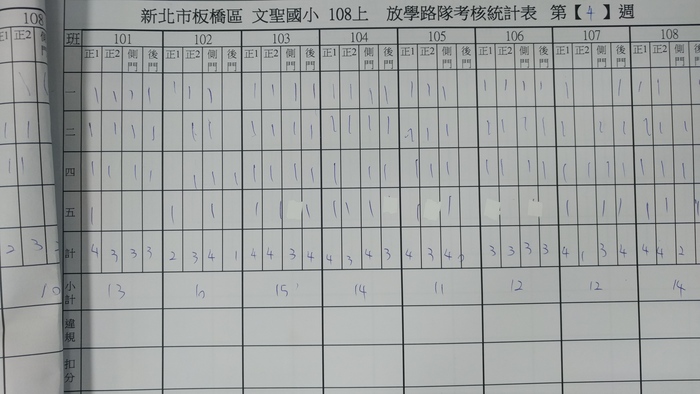 新北市板橋區 文聖國小 108上 放學路隊考核統計表 第【4】週
108
班 101 102 103 104 105 106 107 108
正1 正2 側門 後門 正1 正2 側門 後門 正1 正2 側門 後門 正1 正2 側門 後門 正1 正2 側門 後門 正1 正2 側門 後門 正1 正2 側門 後門 正1 正2 側門
一
二
四
五
計 4 3 3 3 2 3 4 1 4 4 3 4 4 3 4 3 4 3 4 0 3 3 3 3 4 1 3 4 4 4 2
小計 13 10 15 14 11 12 12 14
違規
扣分
2 3
10